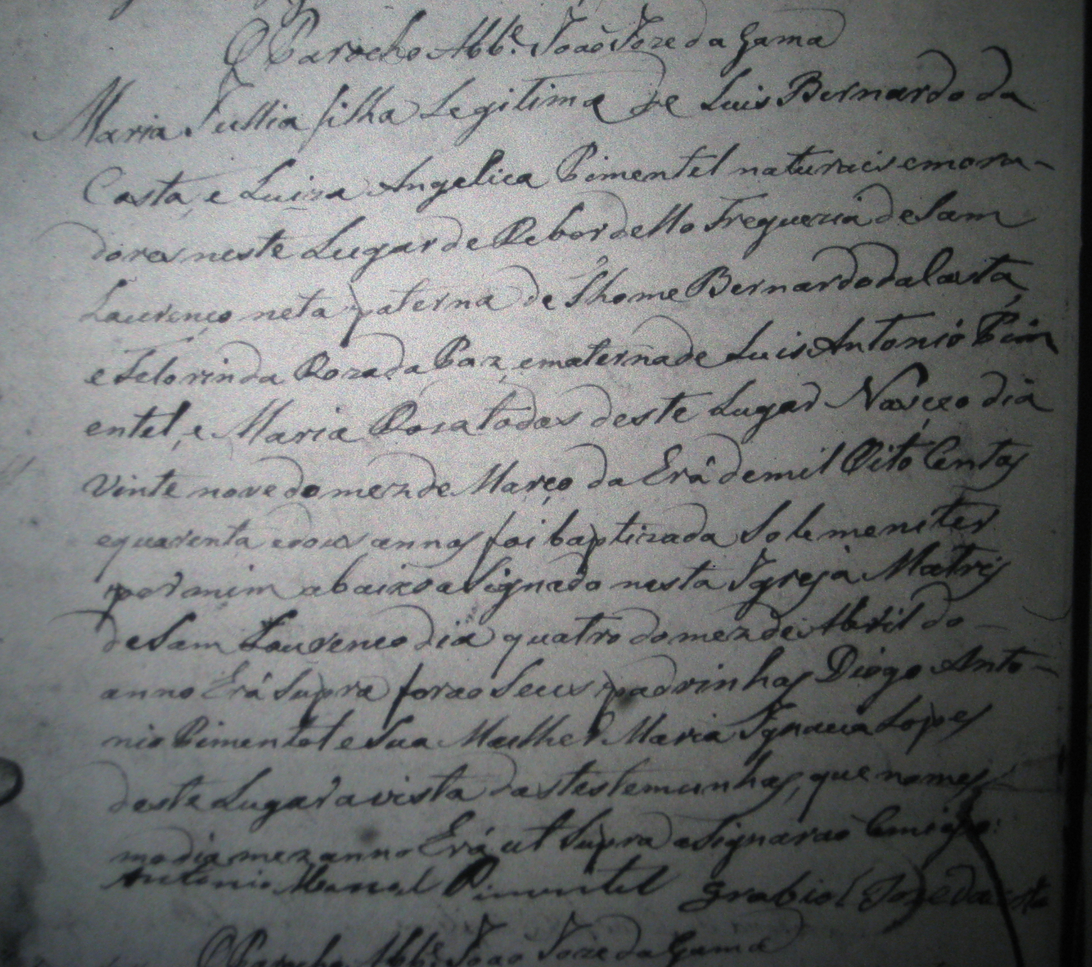 O Parocho Abb.e João Joze da Gama
Maria Jullia filha Legitima de Luis Bernardo da
Costa, e Luiza Angelica Pimentel naturais e mora-
dores neste Lugar de Rebordello Freguezia de Sam
Lourenço neta paterna de Thome Bernardo da Costa
e Felorinda Roza da Paz, e materna de Luis Antonio Pim
entel, e Maria Rosa todos deste Lugar Nasceo dia
vinte nove do mez de Março da Erâ de mil Oito Centos
e quarenta e dous annos foi baptizada Solemniter
por mim abaixo aSignado nesta Igreja Matris
de Sam Lourenco dia quatro do mez de Abril do
anno Erâ Supra forão Seus padrinhos Diogo Anto-
nio Pimentel e Sua Mulher Maria Ignacia Lopes
deste Lugar a vista das testemunhas, que no mes
mo dia mez anno Erâ ut Supra aSignarão Comigo:
Antonio Manoel Pimentel Grabiel Joze da Costa
O Parocho Abb.e João Joze da Gama